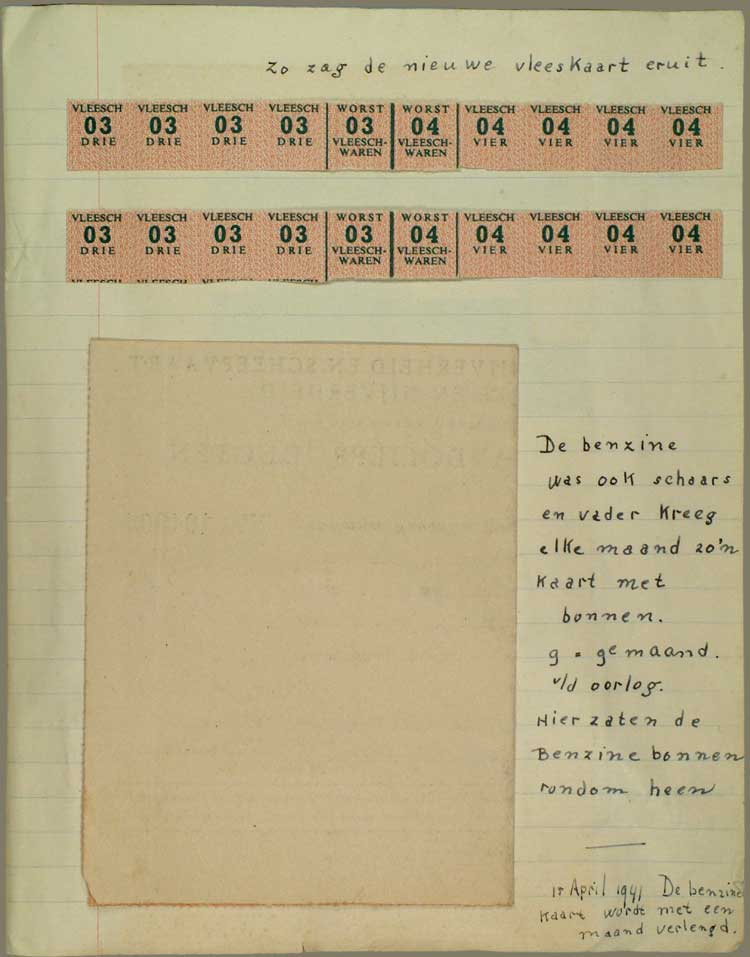 zo zag de nieuwe vleeskaart eruit.
VLEESCH VLEESCH VLEESCH VLEESCH WORST WORST VLEESCH VLEESCH VLEESCH VLEESCH
03 03 03 03 03 04 04 04 04 04
DRIE DRIE DRIE DRIE VLEESCH- VLEESCH- VIER VIER VIER VIER
WAREN WAREN
VLEESCH VLEESCH VLEESCH VLEESCH WORST WORST VLEESCH VLEESCH VLEESCH VLEESCH
03 03 03 03 03 04 04 04 04 04
DRIE DRIE DRIE DRIE VLEESCH- VLEESCH- VIER VIER VIER VIER
WAREN WAREN
De benzine
was ook schaars
en vader kreeg
elke maand zo'n
kaart met
bonnen.
g = ge maand.
v/d oorlog.
Hier zaten de
Benzine bonnen
rondom heen
April 1941 De benzine
kaart wordt met een
maand verlengd.